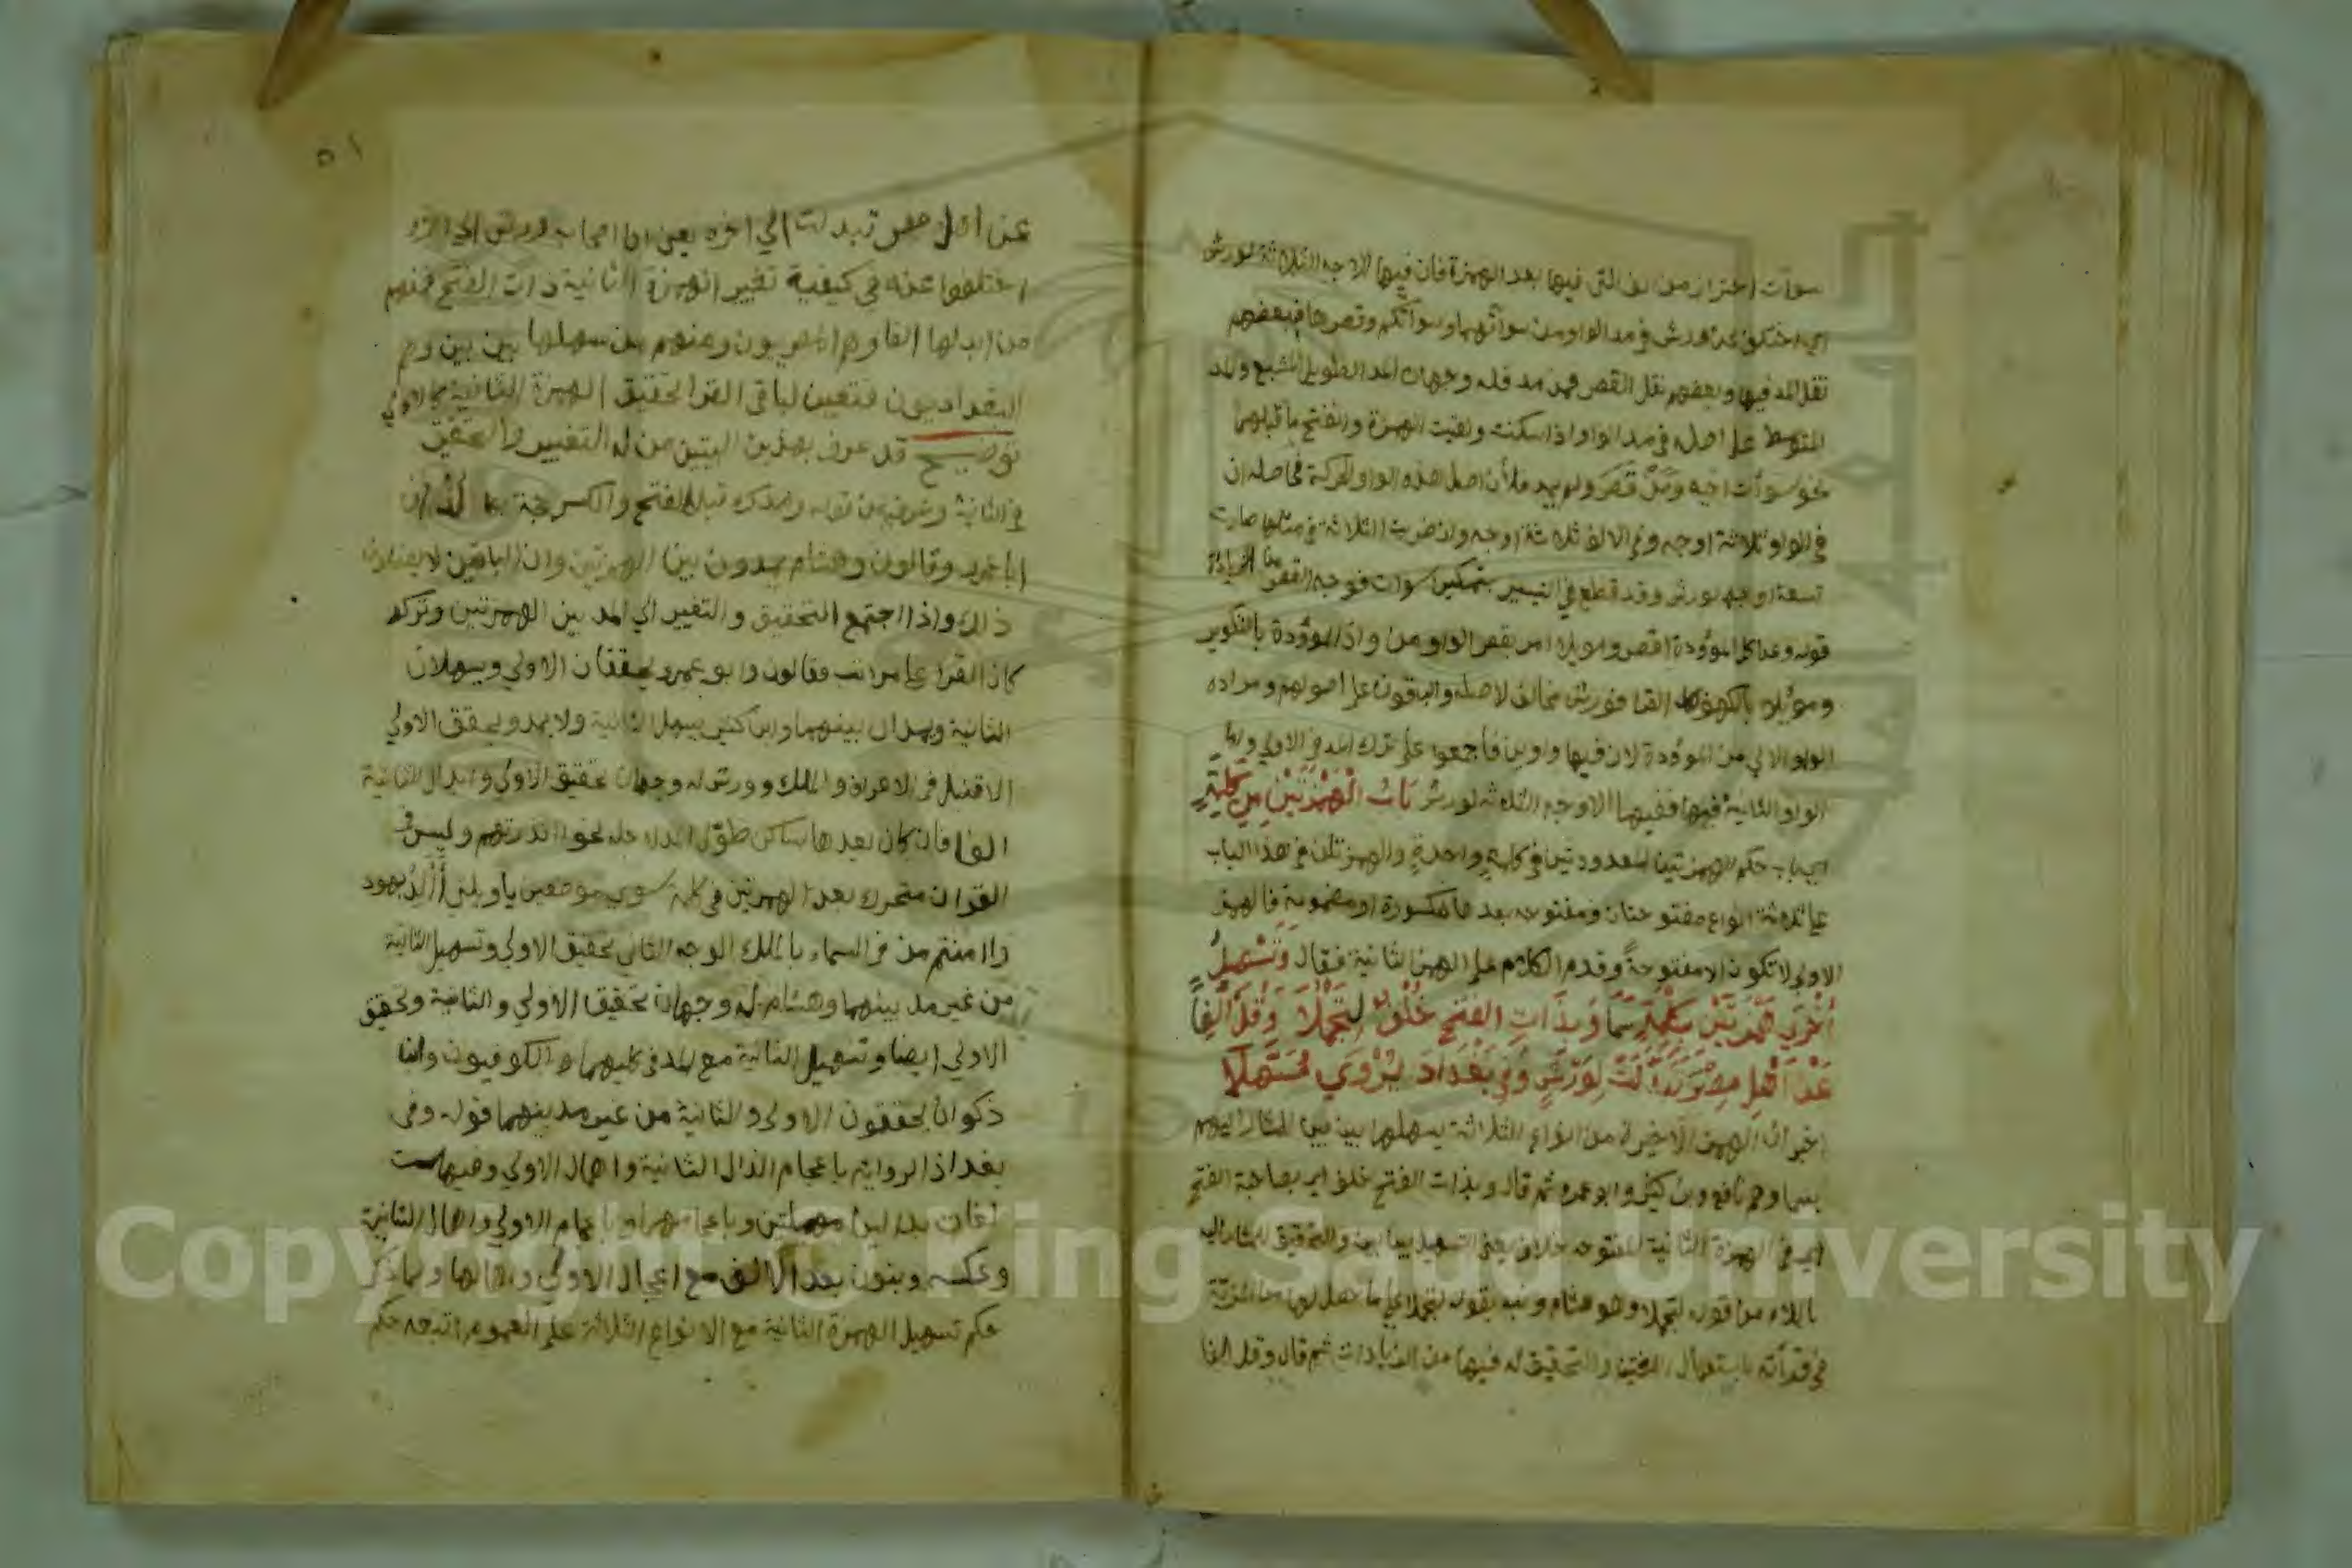 سوآت احتراز من الف التي فيها بعد الهمزة فان فيها الاوجه الثلاثة لورش
اي اختلف عن ورش في مد الواو من سوآتهما وسوآتكم وقصرها فبعضهم
نقل المد فيها وبعضهم نقل القصر فمن مد فله وجهان المد الطويل المشبع والمد
المتوسط على اصله في مد الواو اذا سكنت ولقيت الهمزة وانفتح ما قبلها
نحو سوأت اخيه ومن قصر ولم يمد فلأن اصل هذه الواو الحركة فحاصله ان
في الواو ثلاثة اوجه وفي الالف ثلاثة اوجه واذ ضربت الثلاثة في مثلها صارت
تسعة اوجه لورش وقد قطع في التيسير بتمكين سوات فوجه القصر من الزيادة
قوله وعن كل الموؤدة اقصر وموئلا امر بقصر الواو من واذا الموؤدة بالتكوير
وموئلا بالكهف لكل القرا فورش مخالف لاصله والباقون على اصولهم ومراده
الواو الاولي من الموؤدة لان فيها واوين فاجمعوا على ترك المد في الاولي واما
الواو الثانية فيها ففيها الاوجه الثلاثة لورش بَابُ الْهَمْزَتَيْنِ مِنْ كَلِمَةٍ
اي باب حكم الهمزتين المعدودتين في كلمةٍ واحدةٍ والهمزتان في هذا الباب
على ثلاثة انواع مفتوحتان ومفتوحه بعدها مكسورة او مضمومة فالهمزة
الاولي لا تكون الا مفتوحةً وقدم الكلام على الهمزة الثانية فقال وَتَسْهِيلُ
أُخْرَى هَمْزَتَيْنِ بِكِلْمَةٍ سَمَا وَبِذَاتِ الفَتْحِ خُلْفٌ لِتَجْمُلَا وَقُلْ أَلِفاً
عَنْ أَهْلِ مِصْرَ تَبَدَّلَتْ لِوَرْشٍ وَفِي بَغْدَادَ يُرْوَى مُسَهَّلَا
اخبر ان الهمزة الاخيرة من انواع الثلاثة يسهلها بين بين المشار اليهم
بسما وهم نافع وبن كثير وابو عمرو ثم قال وبذات الفتح خلف اي بصاحبة الفتح
اي في الهمزة الثانية المفتوحه خلاف يعني التسهيل بين بين والتحقيق للمشار اليه
باللام من قوله لتجملا وهو هشام ونبه بقوله لتجملا على ما حصل لها من المزية
في قرأته باستعمال اللغتين والتحقيق له فيها من الزيادات ثم قال وقل الفا
٥١
عن اهل مصر تبدلت الي اخره يعني ان اصحاب ورش
اختلفوا عنه في كيفية تغيير الهمزة الثانية ذات الفتح فمنهم
من ابدلها الفا وهم المصريون ومنهم من سهلها بين بين وهم
البغداديون فتعين لباقي القرا تحقيق الهمزة الثانية كالاولي
توضيح قد عرف بهذين البيتين من له التغيير والتحقيق
في الثانية وعرف من قوله ومدك قبل الفتح والكسر حجة بها لذ ان
ابا عمرو وقالون وهشام يمدون بين الهمزتين وان الباقين لا يفعلون
ذالك واذا اجتمع التحقيق والتغيير الي المد بين الهمزتين وتركه
كان القرا على مراتب فقالون وابو عمرو يحققان الاولي ويسهلان
الثانية ويمدان بينهما وابن كثير يسهل الثانية ولا يمد ويحقق الاولي
الا قنبل في الاعراف والملك وورش له وجهان تحقيق الاولي وابدال الثانية
الفا فان كان بعدها ساكن طوّل المد لاجله نحو أأنذرتهم وليس في
القران متحرك بعد الهمزتين في كلمة سوى موضعين ياويلتي أألد بهود
وأأمنتم من في السماء بالملك الوجه الثاني تحقيق الاولي وتسهيل الثانية
من غير مد بينهما وهشام له وجهان تحقيق الاولي والثانية وتحقيق
الاولي ايضا وتسهيل الثانية مع المد في كليهما والكوفيون وابن
ذكوان يحققون الاولي والثانية من غير مد بينهما قوله وفي
بغداذ الرواية باعجام الذال الثانية واهمال الاولي وفيها ست
لغات بدالين مهملتين وباعجامهما وباعجام الاولي واهمال الثانية
وعكسه وبنون بعد الالف مع اعجال الاولي واهمالها ولما ذكر
حكم تسهيل الهمزة الثانية مع الانواع الثلاثة على العموم اتبعه حكم
Copyright © King Saud University